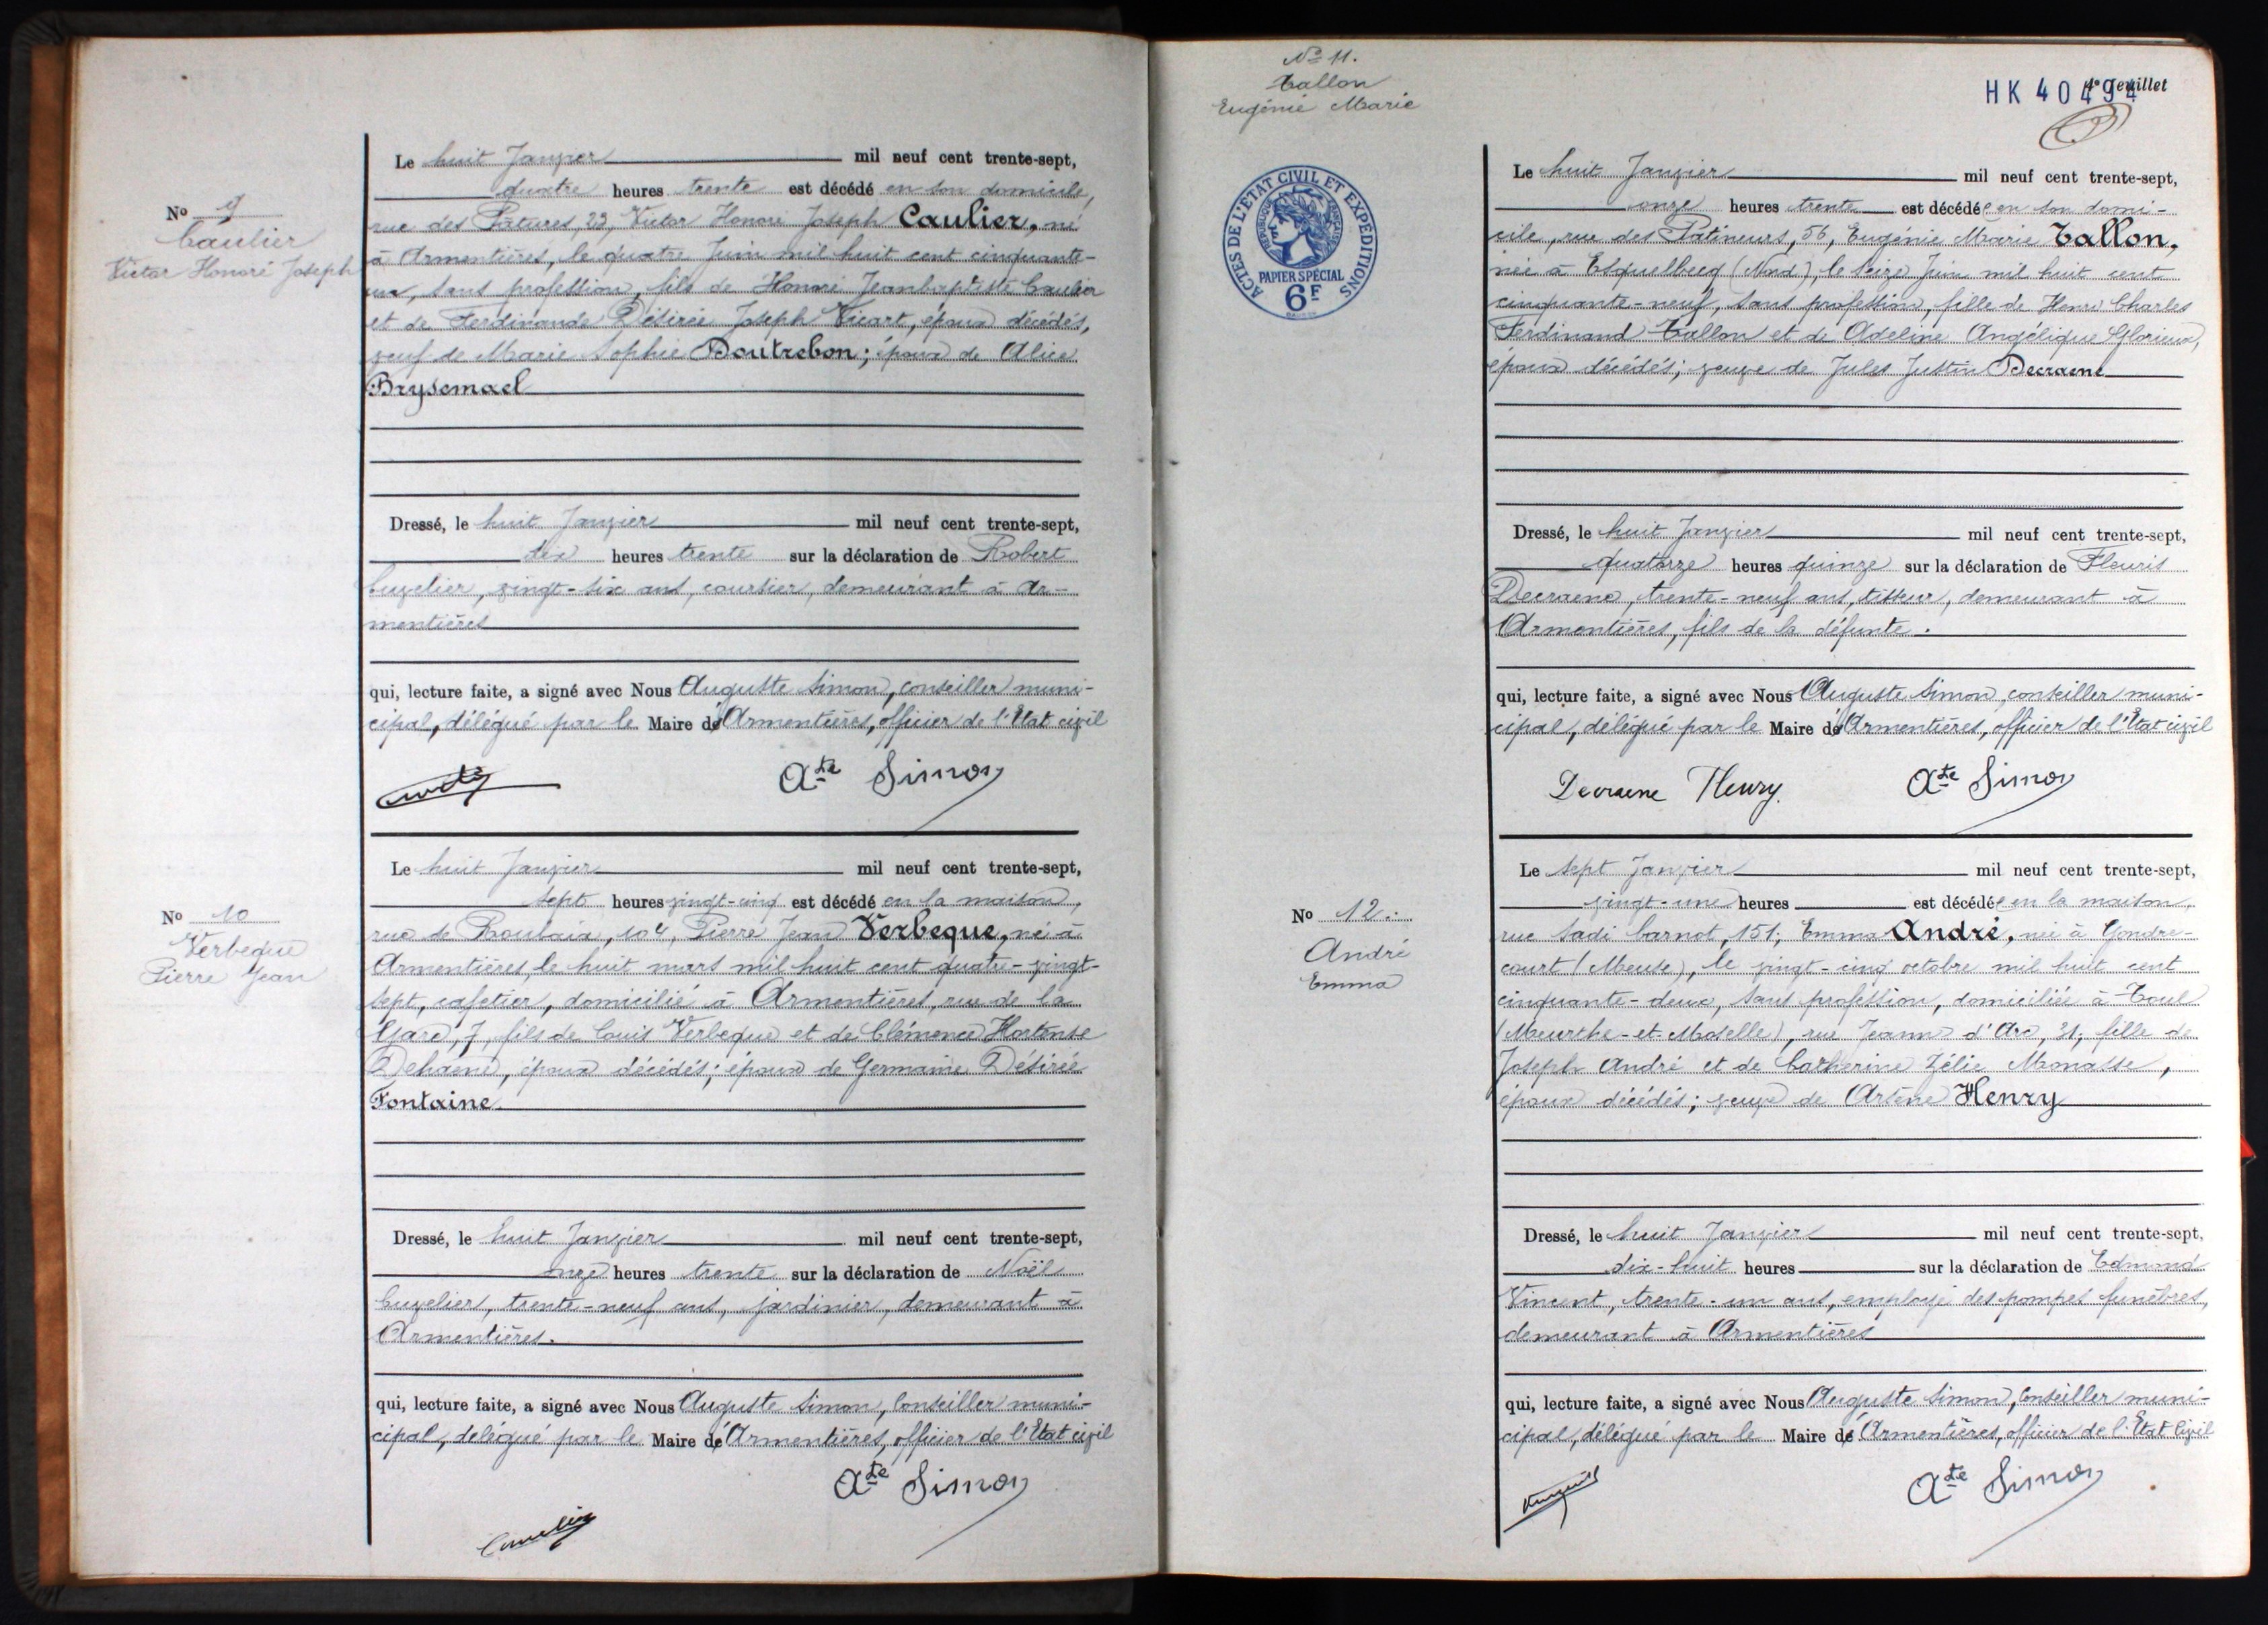 Le huit Janvier mil neuf cent trente-sept,
quatre heures trente est décédé en son domicile,
No 9
rue des Pâtures, 23, Victor Honoré Joseph Caulier, né
Caulier
à Armentières, le quatre Juin mil huit cent cinquante-
Victor Honoré Joseph
un, sans profession, fils de Honoré Jeanbaptiste Caulier
et de Ferdinande Désirée Joseph Ticart, époux décédés,
veuf de Marie Sophie Doutrebon; époux de Alice
Brysemael
Dressé, le huit Janvier mil neuf cent trente-sept,
dix heures trente sur la déclaration de Robert
Cuvelier, vingt-six ans, coursier, demeurant à Ar-
mentières
qui, lecture faite, a signé avec Nous Auguste Simon, conseiller muni-
cipal, délégué par le Maire d'Armentières, officier de l'Etat civil
Ate Simon
Le huit Janvier mil neuf cent trente-sept,
sept heures vingt-cinq est décédé en la maison,
No 10
rue de Roubaix, 104, Pierre Jean Verbeque, né à
Verbeque
Pierre Jean
Armentières, le huit mars mil huit cent quatre-vingt-
sept, cafetier, domicilié à Armentières, rue de la
Gare, 7, fils de Louis Verbeque et de Clémence Hortense
Dehaene, époux décédés; époux de Germaine Désirée
Fontaine.
Dressé, le huit Janvier mil neuf cent trente-sept,
onze heures trente sur la déclaration de Noël
Cuvelier, trente-neuf ans, jardinier, demeurant à
Armentières.
qui, lecture faite, a signé avec Nous Auguste Simon, Conseiller muni-
cipal, délégué par le Maire d'Armentières, officier de l'Etat civil
Ate Simon
Cuvelier
No 11.
Tallon
Eugénie Marie
HK 40494
4e Feuillet
ACTES DE L'ÉTAT CIVIL ET EXPÉDITIONS
REPUBLIQUE FRANÇAISE
PAPIER SPÉCIAL
6F
Le huit Janvier mil neuf cent trente-sept,
onze heures trente est décédée en son domi-
cile, rue des Patineurs, 56, Eugénie Marie Tallon,
née à Esquelbecq (Nord), le seize Juin mil huit cent
cinquante-neuf, sans profession, fille de Henri Charles
Ferdinand Tallon et de Adeline Angélique Glorieux,
époux décédés; veuve de Jules Justin Decraene
Dressé, le huit Janvier mil neuf cent trente-sept,
quatorze heures quinze sur la déclaration de Fleuris
Decraene, trente-neuf ans, tisseur, demeurant à
Armentières, fils de la défunte.
qui, lecture faite, a signé avec Nous Auguste Simon, conseiller muni-
cipal, délégué par le Maire d'Armentières, officier de l'Etat civil
Decraene Fleury. Ate Simon
Le sept Janvier mil neuf cent trente-sept,
vingt-une heures est décédée en la maison,
No 12.
rue Sadi Carnot, 151; Emma André, née à Gondre-
André
Emma
court (Meuse), le vingt-cinq octobre mil huit cent
cinquante-deux, sans profession, domiciliée à Toul
(Meurthe-et-Moselle), rue Jeanne d'Arc, 31; fille de
Joseph André et de Catherine Zélie Monasse,
époux décédés; veuve de Arsène Henry
Dressé, le huit Janvier mil neuf cent trente-sept,
dix-huit heures sur la déclaration de Edmond
Vincent, trente-un ans, employé des pompes funèbres,
demeurant à Armentières
qui, lecture faite, a signé avec Nous Auguste Simon, Conseiller muni-
cipal, délégué par le Maire d'Armentières, officier de l'Etat Civil
Vincent Ate Simon